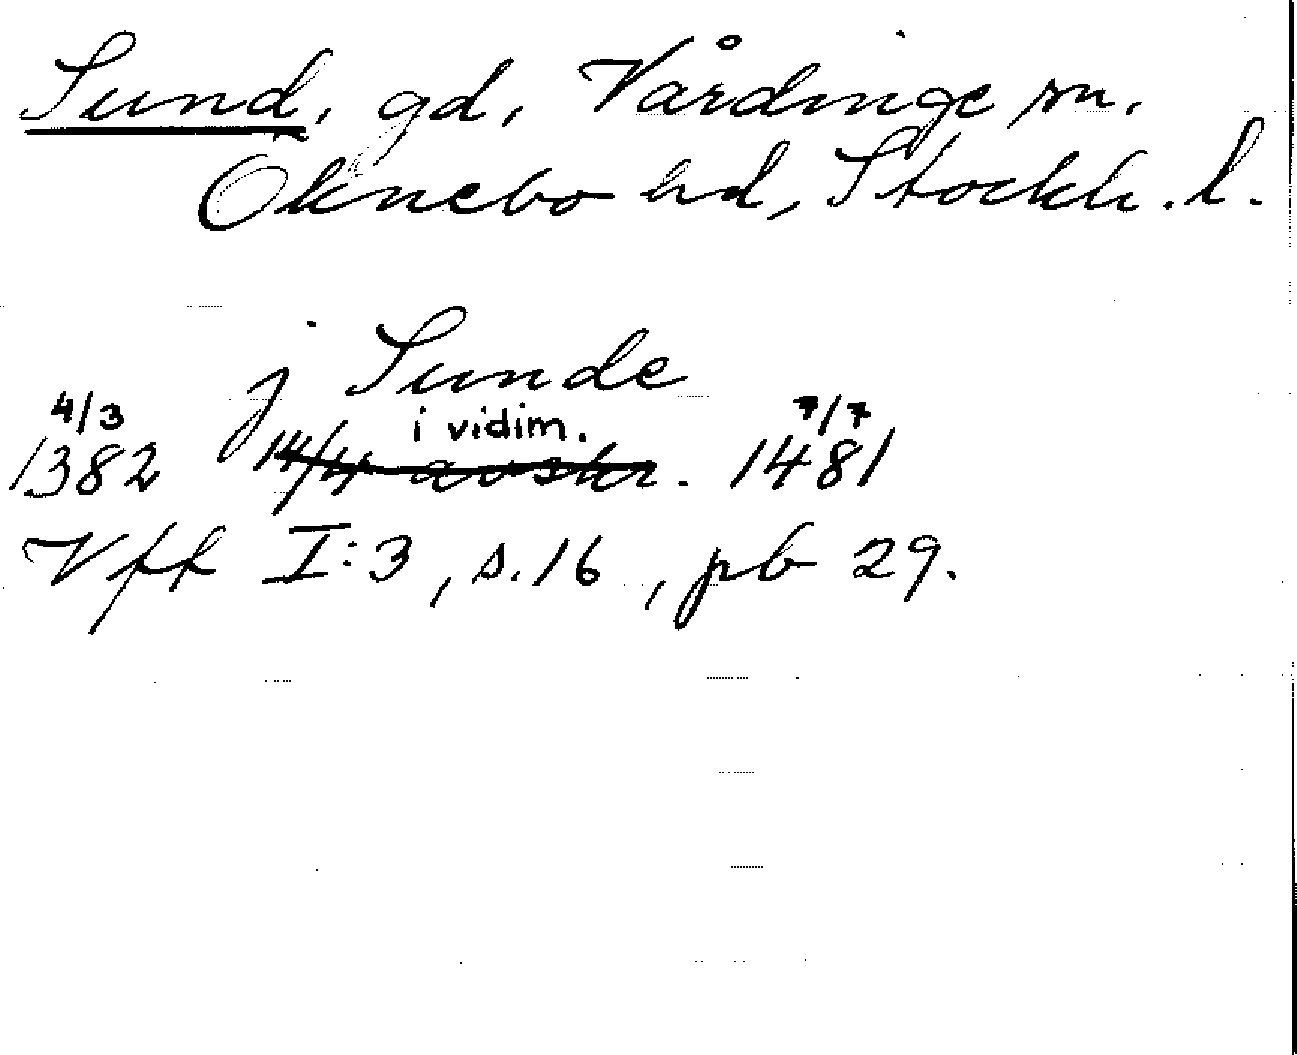 Sund, gd, Vårdinge sn,
Öknebo hd, Stockh. l.
j Sunde
4/3 i vidim. 7/7
1382 14/4 avskr. 1481
Vff I:3, s. 16, pb 29.